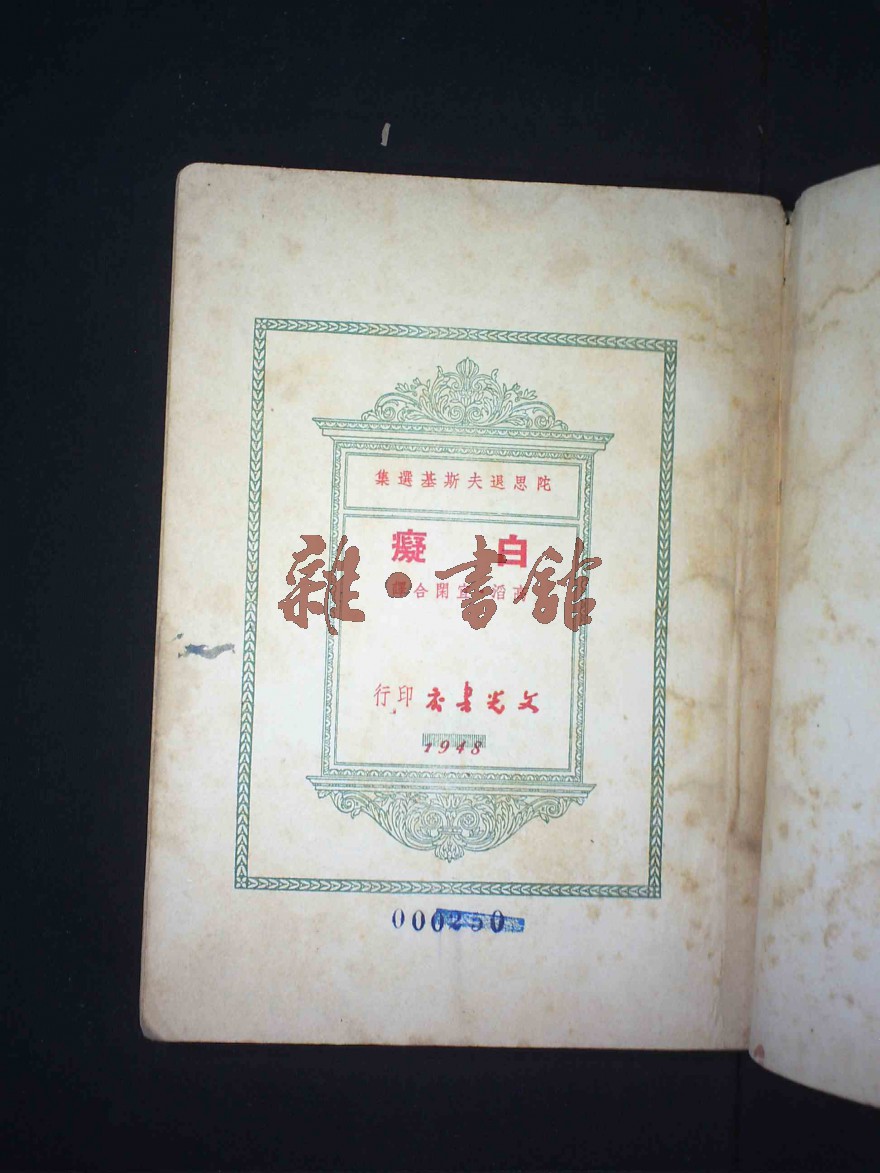 陀思退夫斯基選集
白癡
宜閑合譯
雜·書館
文光書店印行
1948
000250